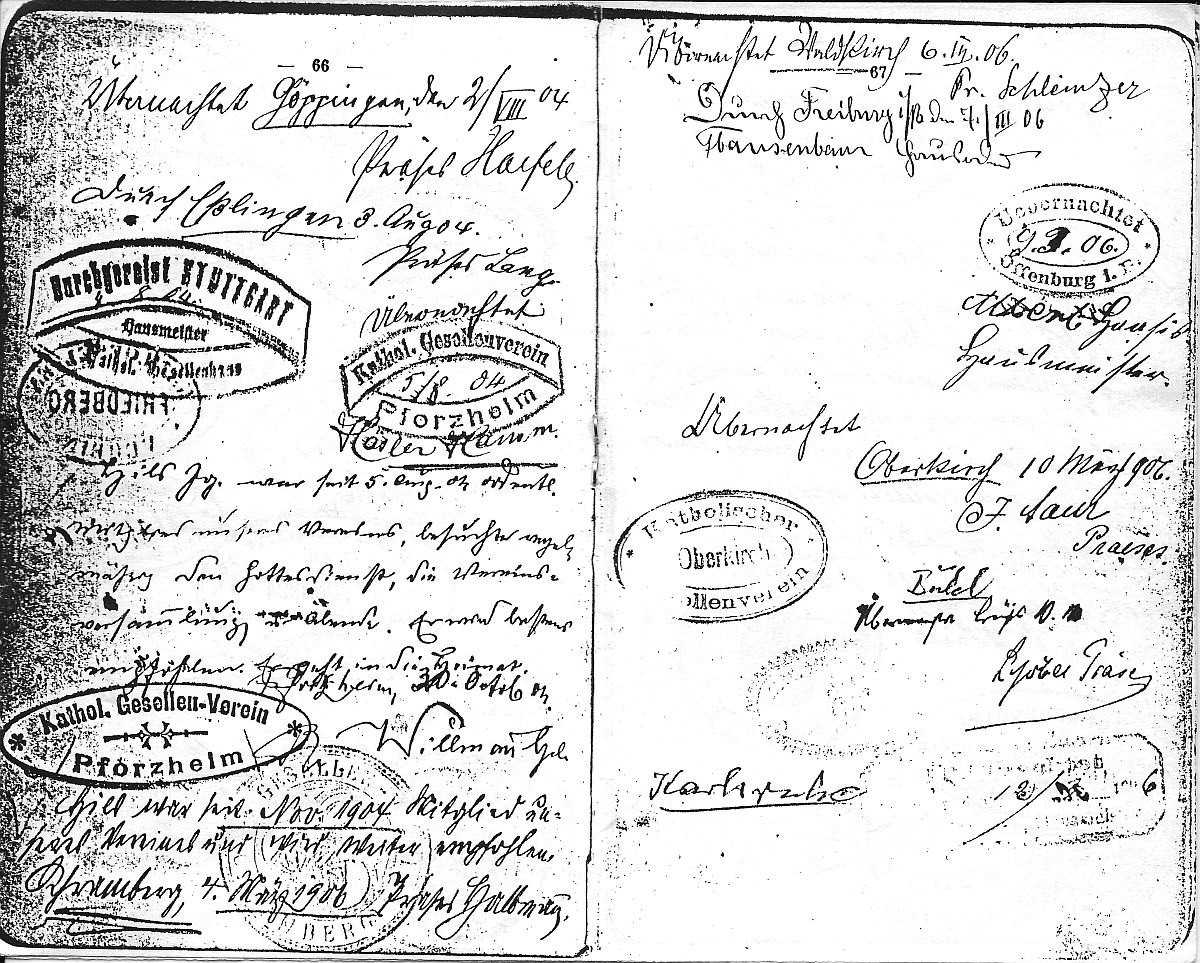 — 66 —
Übernachtet Göppingen, den 2/VIII 04
Präses Haefele
Durch Eßlingen 3. Aug 04.
Präses Lang.
Durchgereist STUTTGART
4 8 04.
Hausmeister
Kathol. Gesellenhaus
FRIEDBERG
Übernachtet
Kathol. Gesellenverein
5/8. 04
Pforzheim
Hils Jg. war seit 5. Aug. 04 ordentl.
Mitglied unseres Vereines, besuchte regel-
mäßig den Gottesdienst, die Vereins-
versammlung Abende. Er wird bestens
empfohlen. Er geht in die Heimat.
Pforzheim, 30. Octob 04.
Kathol. Gesellen-Verein
Pforzheim
Hils war seit Nov. 1904 Mitglied un-
seres Vereines und wird weiter empfohlen.
Schramberg, 4. März 1906 Präses
GESELLE
MBERG
Übernachtet Waldkirch 6. III. 06.
67 —
Pr. Schleinzer
Durch Freiburg i/B den 7. / III 06
Hausm
Uebernachtet
9. 3. 06.
Offenburg i. B.
Albert
Hausmeister.
Übernachtet
Oberkirch 10 März 906.
Praeses.
Katholischer
Oberkirch
Gesellenverein
Bühl
Präses
Karlsruhe